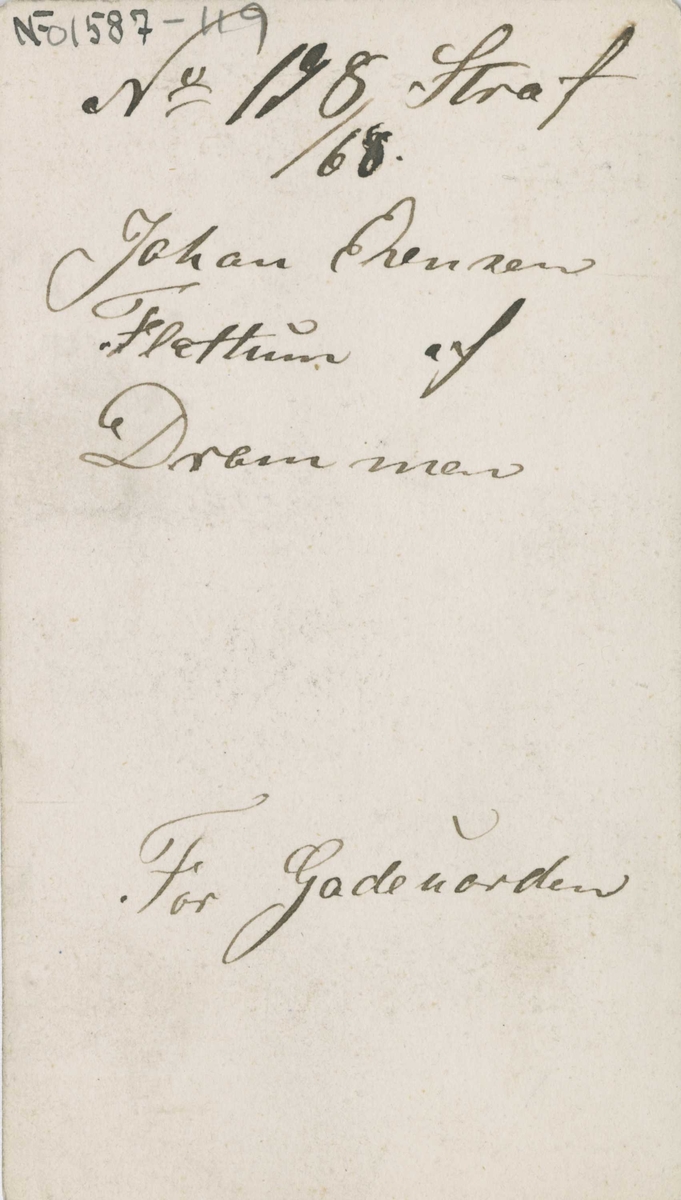 N-01587-119
No 198 Straf
/68.
Johan Evensen
Flattum af
Drammen
For Gadeuorden